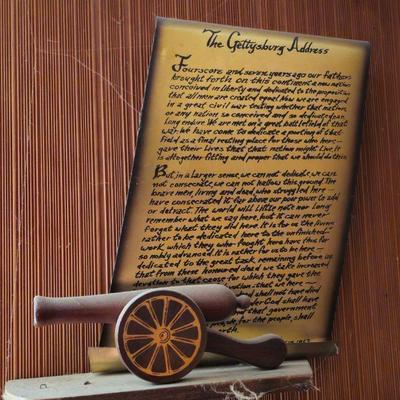 The Gettysburg Address
Fourscore and seven years ago our fathers
brought forth on this continent a new nation
conceived in liberty and dedicated to the proposition
that all men are created equal. Now we are engaged
in a great civil war testing whether that nation,
or any nation so conceived and so dedicated can
long endure. We are met on a great battlefield of that
war. We have come to dedicate a portion of that
field as a final resting place for those who here
gave their lives that that nation might live. It
is altogether fitting and proper that we should do this.
But, in a larger sense, we can not dedicate, we can
not consecrate, we can not hallow this ground. The
brave men, living and dead who struggled here
have consecrated it far above our poor power to add
or detract. The world will little note nor long
remember what we say here, but it can never
forget what they did here. It is for us the living
rather to be dedicated here to the unfinished
work, which they who fought here have thus far
so nobly advanced. It is rather for us to be here
dedicated to the great task remaining before us
that from these honoured dead we take increased
devotion to that cause for which they gave the
devotion, that we here
shall not have died
under God shall have
that government
people, for the people, shall
earth.